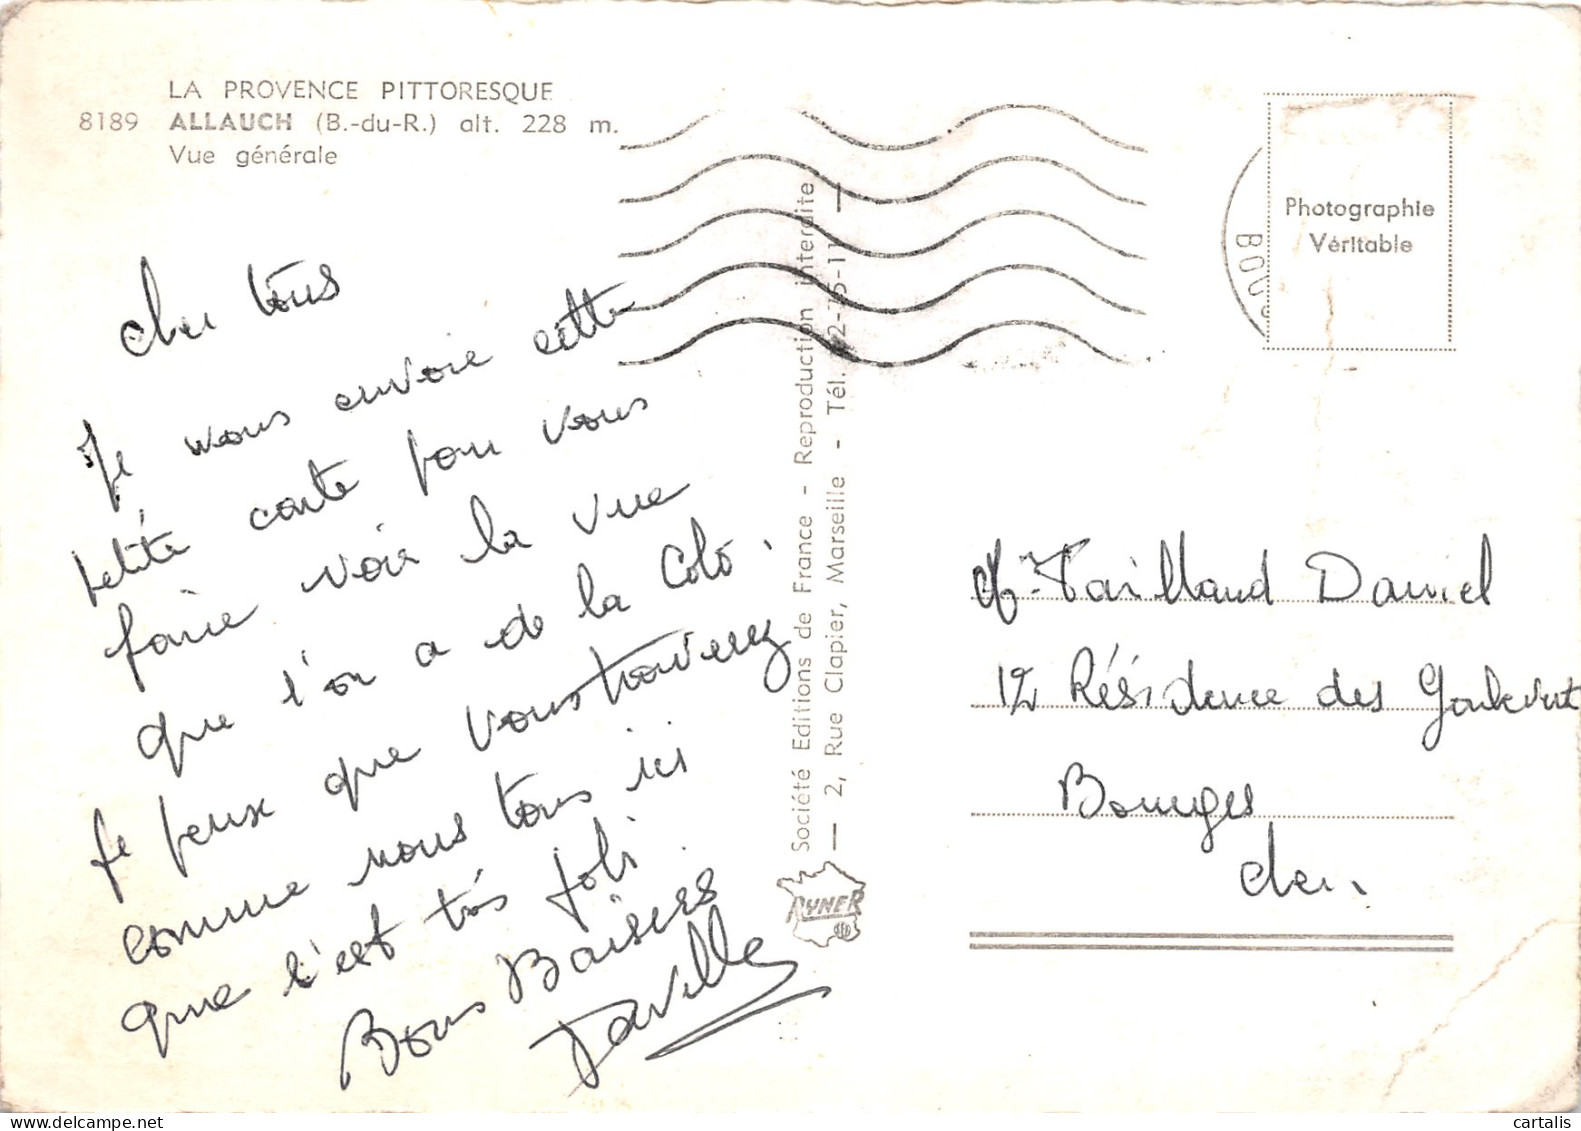 LA PROVENCE PITTORESQUE
8189 ALLAUCH (B.-du-R.) alt. 228 m.
Vue générale
Cher tous
Je vous envoie cette
petite carte pour vous
faire voir la vue
que l'on a de la Colo.
Je peux que vous trouverez
comme nous tous ici
que c'est très joli.
Bons Baisers
Société Editions de France - Reproduction interdite
— 2, Rue Clapier, Marseille - Tél.
RYNER
BOU
Photographie
Véritable
Mr Taillaud Daniel
12 Résidence des
Bourges
Cher.
cartalis